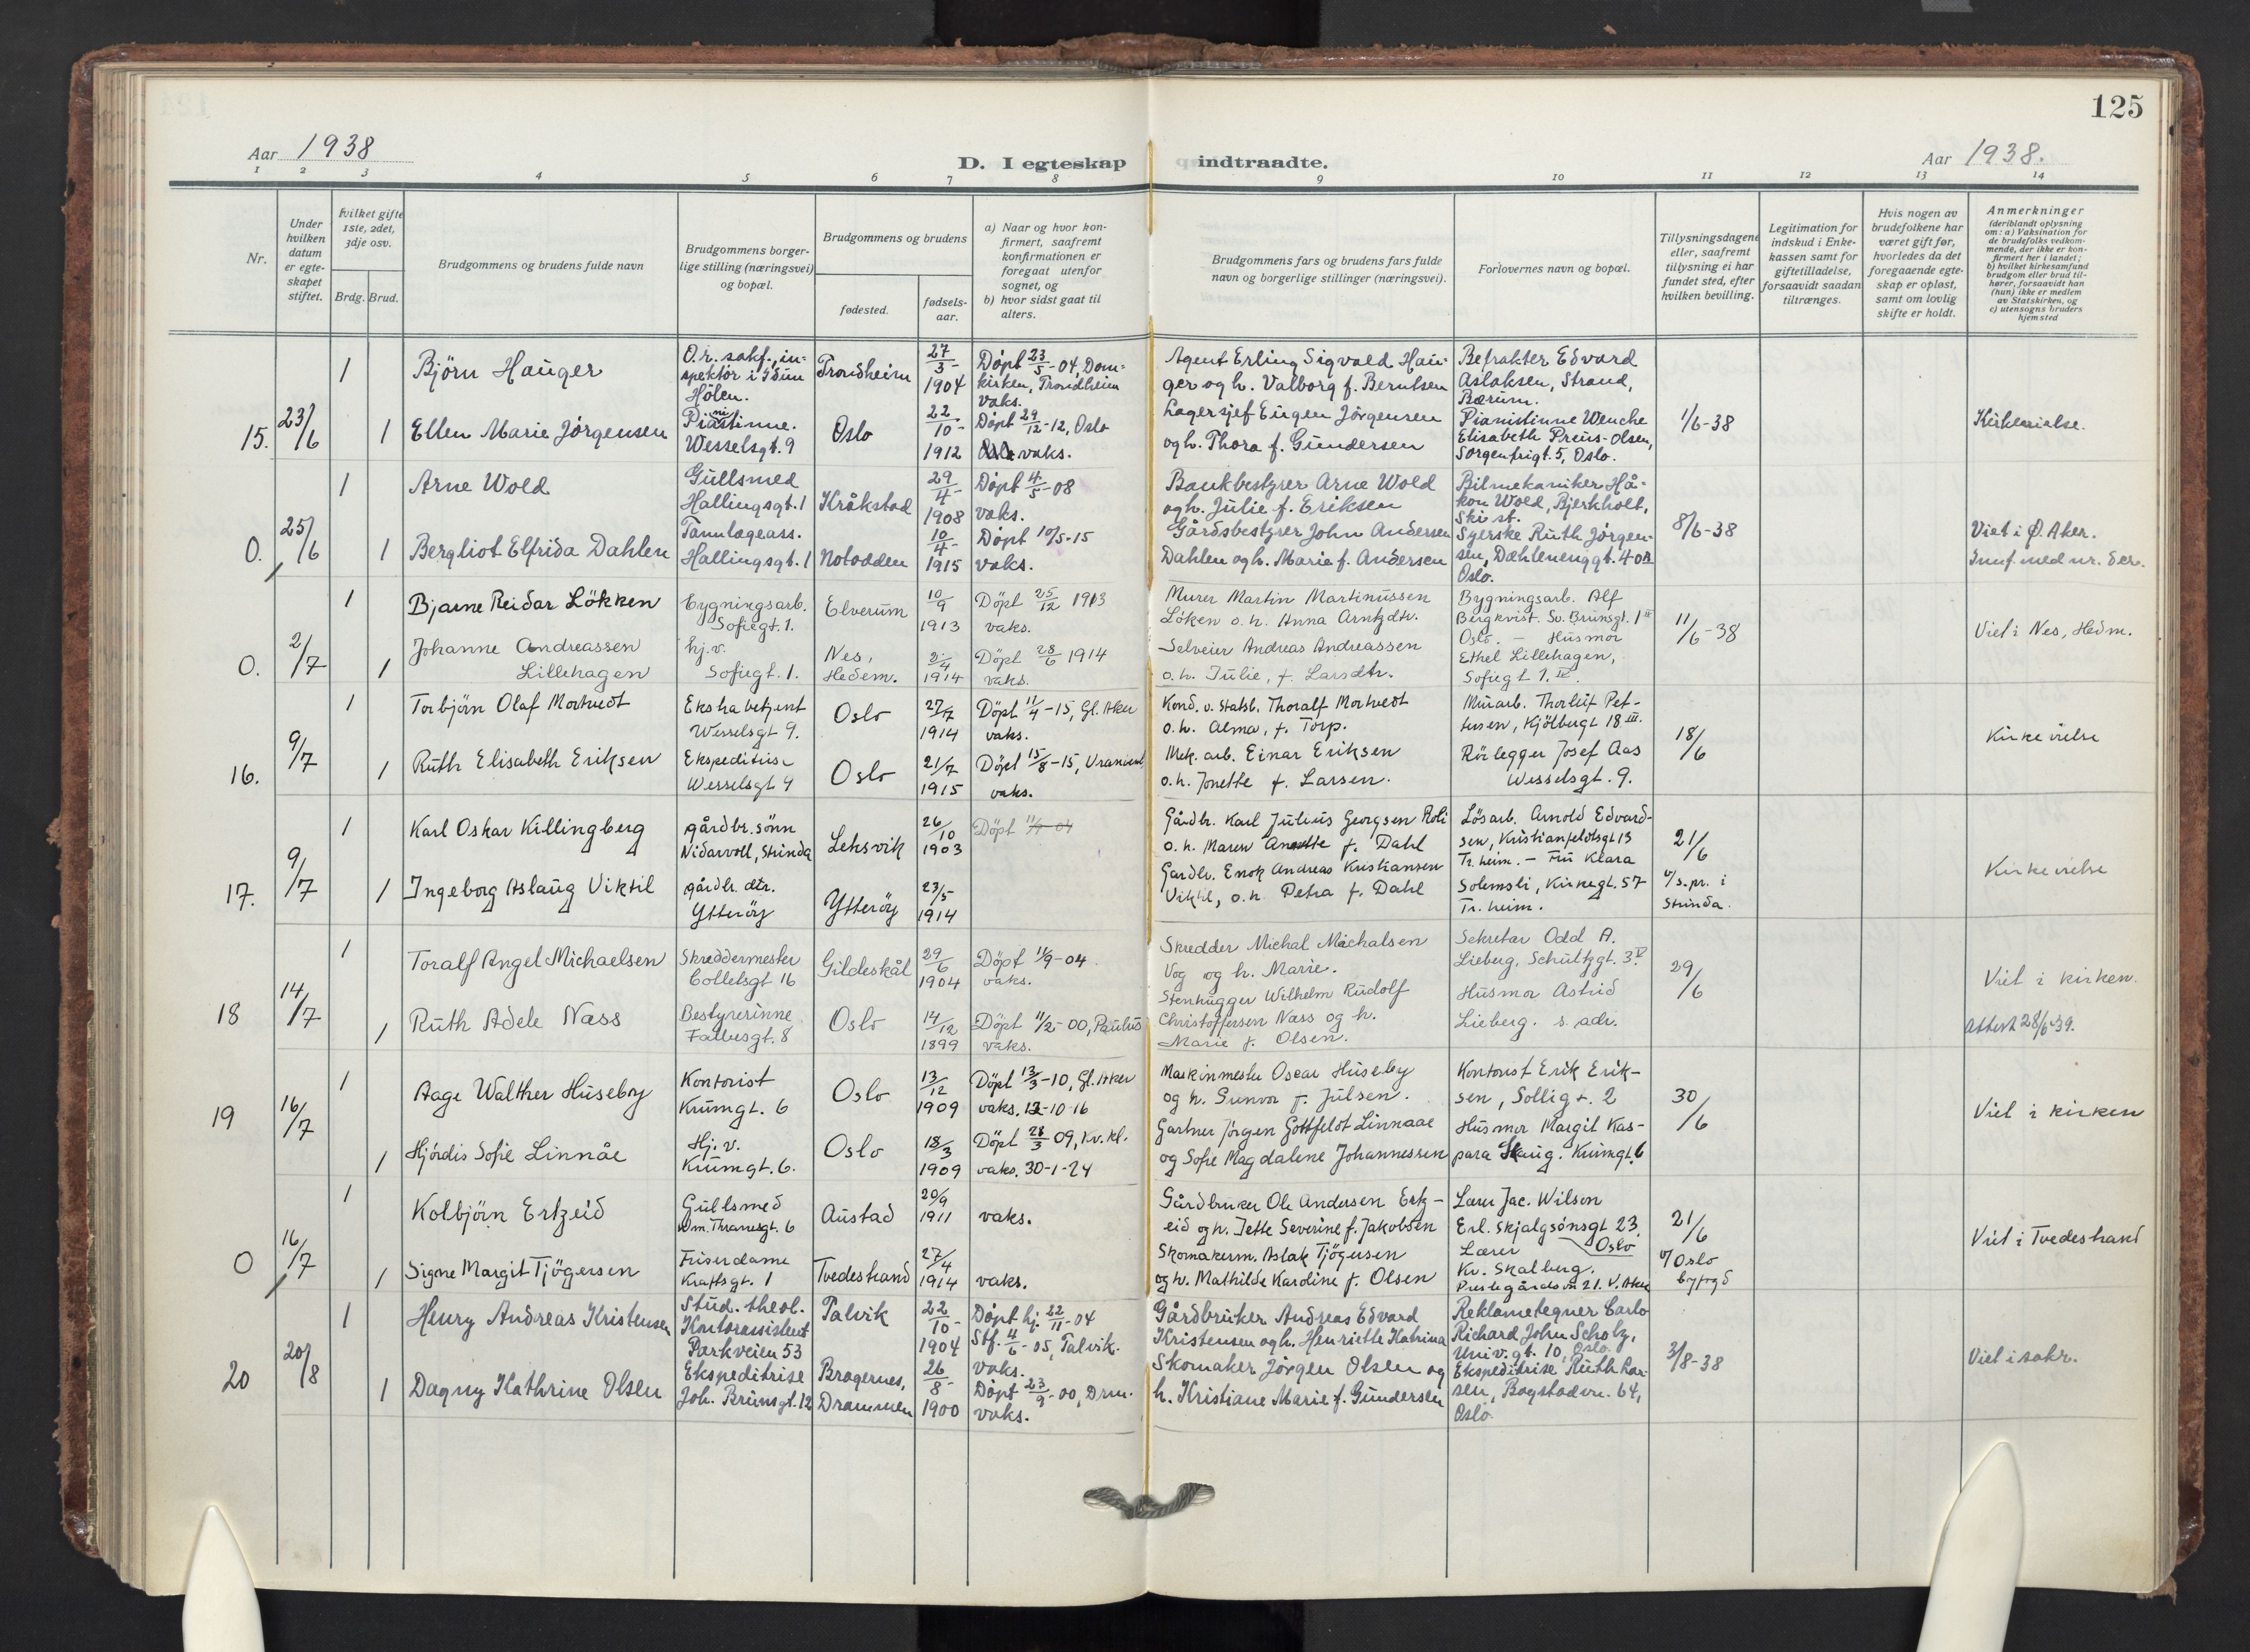 125
Aar 1938
D. I egteskap indtraadte.
Aar 1938.
1 2 3 4 5 6 7 8 9 10 11 12 13 14
Nr.
Under hvilken datum er egteskapet stiftet.
Hvilket gifte 1ste, 2det, 3dje osv.
Brdg. Brud.
Brudgommens og brudens fulde navn
Brudgommens borgerlige stilling (næringsvei) og bopæl.
Brudgommens og brudens
fødested.
fødselsaar.
a) Naar og hvor konfirmert, saafremt konfirmationen er foregaat utenfor sognet, og
b) hvor sidst gaat til alters.
Brudgommens fars og brudens fars fulde navn og borgerlige stillinger (næringsvei).
Forlovernes navn og bopæl.
Tillysningsdagene eller, saafremt tillysning ei har fundet sted, efter hvilken bevilling.
Legitimation for indskud i Enkekassen samt for giftetilladelse, forsaavidt saadan tiltrænges.
Hvis nogen av brudefolkene har været gift før, hvorledes da det foregaaende egteskap er opløst, samt om lovlig skifte er holdt.
Anmerkninger
(deriblandt oplysning om: a) Vaksination for de brudefolks vedkommende, der ikke er konfirmert her i landet; b) hvilket kirkesamfund brudgom eller brud tilhører, forsaavidt han (hun) ikke er medlem av Statskirken, og c) utensogns bruders hjemsted
15. 23/6
1 Björn Hauger
O.r. sakf., inspektör i Idun Hölen.
Trondheim
27/3- 1904
Döpt 23/5-04, Domkirken, Trondheim vaks.
Agent Erling Sigvald Hauger og h. Valborg f. Berntsen
Befrakter Edvard Aslaksen, Strand, Bærum.
1 Ellen Marie Jörgensen
Pianistinne. Wesselsgt. 9
Oslo
22/10- 1912
Döpt 29/12-12, Oslo vaks.
Lagersjef Eugen Jörgensen og h. Thora f. Gundersen
Pianistinne Wenche Elisabeth Preus-Olsen, Sorgenfrigt. 5, Oslo.
1/6-38
Kirkevielse.
0. 25/6
1 Arne Wold
Gullsmed Hallingsgt. 1
Kråkstad
29/4- 1908
Döpt 4/5-08 vaks.
Bankbestyrer Arne Wold og h. Julie f. Eriksen
Bilmekaniker Håkon Wold, Bjerkholt, Ski st.
1 Bergliot Elfrida Dahlen
Tannlægeass. Hallingsgt. 1
Notodden
10/4- 1915
Döpt 10/5-15 vaks.
Gårdsbestyrer John Andersen Dahlen og h. Marie f. Andersen
Syerske Ruth Jörgensen, Dæhlenenggt. 40 Oslo.
8/6-38
Viet i Ø. Aker.
Innf. med nr. der.
0. 2/7
1 Bjarne Reidar Lökken
Bygningsarb. Sofiegt. 1.
Elverum
10/9 1913
Döpt 25/12 1913 vaks.
Murer Martin Martinussen Löken o. h. Anna Arntzdtr.
Bygningsarb. Alf Bergkvist. Sv. Brunsgt. 1 III Oslo. –
1 Johanne Andreassen Lillehagen
hj.v. Sofiegt. 1.
Nes, Hedem.
2/4 1914
Döpt 28/6 1914 vaks.
Selveier Andreas Andreassen o. h. Julie, f. Larsdtr.
Husmor Ethel Lillehagen, Sofiegt 1. IV.
11/6-38
Viet i Nes, Hedm.
16. 9/7
1 Torbjörn Olaf Mortvedt
Ekstrabetjent Wesselsgt 9.
Oslo
1914
Döpt 11/4-15, Gl. Aker vaks.
Kond. v. Statsb. Thoralf Mortvedt o. h. Alma, f. Torp.
Murarb. Thorleif Pettersen, Kjölbergt 18 III.
1 Ruth Elisabeth Eriksen
Ekspeditrise Wesselsgt 9
Oslo
21/7 1915
Döpt 15/8-15, Uranienb. vaks.
Mek. arb. Einar Eriksen o. h. Jonette f. Larsen.
Rörlegger Josef Aas Wesselsgt. 9.
18/6
Kirkevielse
17. 9/7
1 Karl Oskar Killingberg
gårdbr. sönn Nidarvoll, Strinda
Leksvik
26/10 1903
Döpt 11/9-04
Gårdb. Karl Julius Georgsen Roli o. h. Maren Anette f. Dahl
Lösarb. Arnold Edvardsen, Kristianfeldtsgt 13 Tr.heim. –
1 Ingeborg Aslaug Viktil
gårdbr. dtr. Ytteröy
Ytteröy
23/5 1914
Gardbr. Enok Andreas Kristiansen Viktil, o. h. Petra f. Dahl
Fru Klara Solemsli, Kirkegt. 57 Tr. heim.
21/6 v/ s.pr. i Strinda.
Kirkevielse
18 14/7
1 Toralf Angel Michaelsen
Skreddermester Colletsgt 16
Gildeskål
29/6 1904
Döpt 11/9-04. vaks.
Skredder Michal Michalsen Vog og h. Marie.
Sekretær Odd A. Lieberg, Schultzgt. 3 V.
1 Ruth Adele Næss
Bestyrerinne Falbesgt. 8
Oslo
14/12 1899
Döpt 11/2-00, Paulus vaks.
Stenhugger Wilhelm Rudolf Christoffersen Næss og h. Marie f. Olsen.
Husmor Astrid Lieberg. s. adr.
29/6
Viet i kirken.
Attest 28/6-39.
19 16/7
1 Aage Walther Huseby
Kontorist Krumgt. 6
Oslo
13/12 1909
Döpt 13/3-10, Gl. Aker vaks. 12-10-16
Maskinmester Oscar Huseby og h. Gunvor f. Julsen.
Kontorist Erik Eriksen, Solligt. 2
1 Hjördis Sofie Linnåe
Hj. v. Krumgt. 6.
Oslo
18/3 1909
Döpt 28/3 09, Kv. kl. vaks. 30-1-24
Gartner Jörgen Gottfeldt Linnaae og Sofie Magdalene Johannessen
Husmor Margit Kaspara Skaug. Krumgt. 6
30/6
Viet i kirken
0 16/7
1 Kolbjörn Ertzeid
Gullsmed Wm. Thranesgt. 6
Austad
20/9 1911
vaks.
Gårdbruker Ole Andersen Ertzeid og h. Jette Severine f. Jakobsen
Lærer Jac. Wilson Erl. Skjalgsönsgt 23. Oslo
1 Signe Margit Tjögersen
Friserdame Kraftsgt. 1
Tvedestrand
27/4 1914
vaks.
Skomakerm. Aslak Tjögersen og h. Mathilde Karoline f. Olsen
Lærer Kr. Skalberg. Prestegårdsvn 21. V. Aker
21/6 v/ Oslo byfogd
Viet i Tvedestrand
20 20/8
1 Henry Andreas Kristensen
Stud. theol. Kontorassistent Parkveien 53
Talvik
22/10- 1904
Döpt hj. 22/11-04 Stf. 4/6-05, Talvik. vaks.
Gårdbruker Andreas Edvard Kristensen og h. Henriette Katrina
Reklametegner Carlo Richard John Scholz, Univ.gt. 10, Oslo.
1 Dagny Kathrine Olsen
Ekspeditrise Joh. Brunsgt. 12
Bragernes, Drammen
26/8- 1900
Döpt 23/9-00, Drm. vaks.
Skomaker Jörgen Olsen og h. Kristiane Marie f. Gundersen
Ekspeditrise Ruth Larsen, Bogstadvn. 64, Oslo.
3/8-38
Viet i sakr.